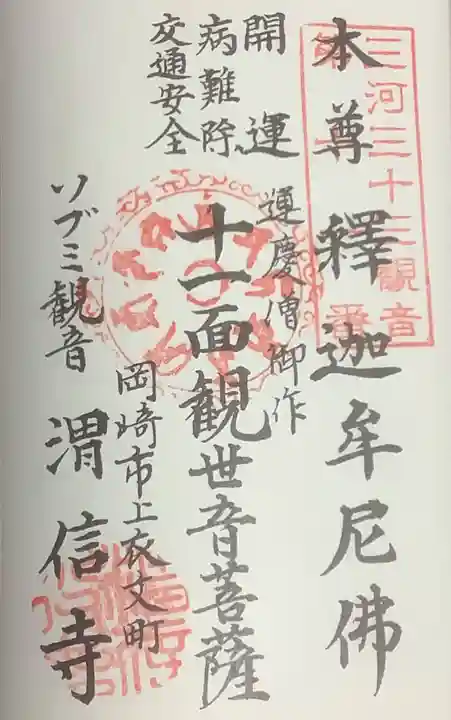 三河三十三観音
本尊釋迦牟尼佛
運慶僧御作
十一面観世音菩薩
開運
病難除
交通安全
岡崎市上衣文町
ソブミ観音
渭信寺